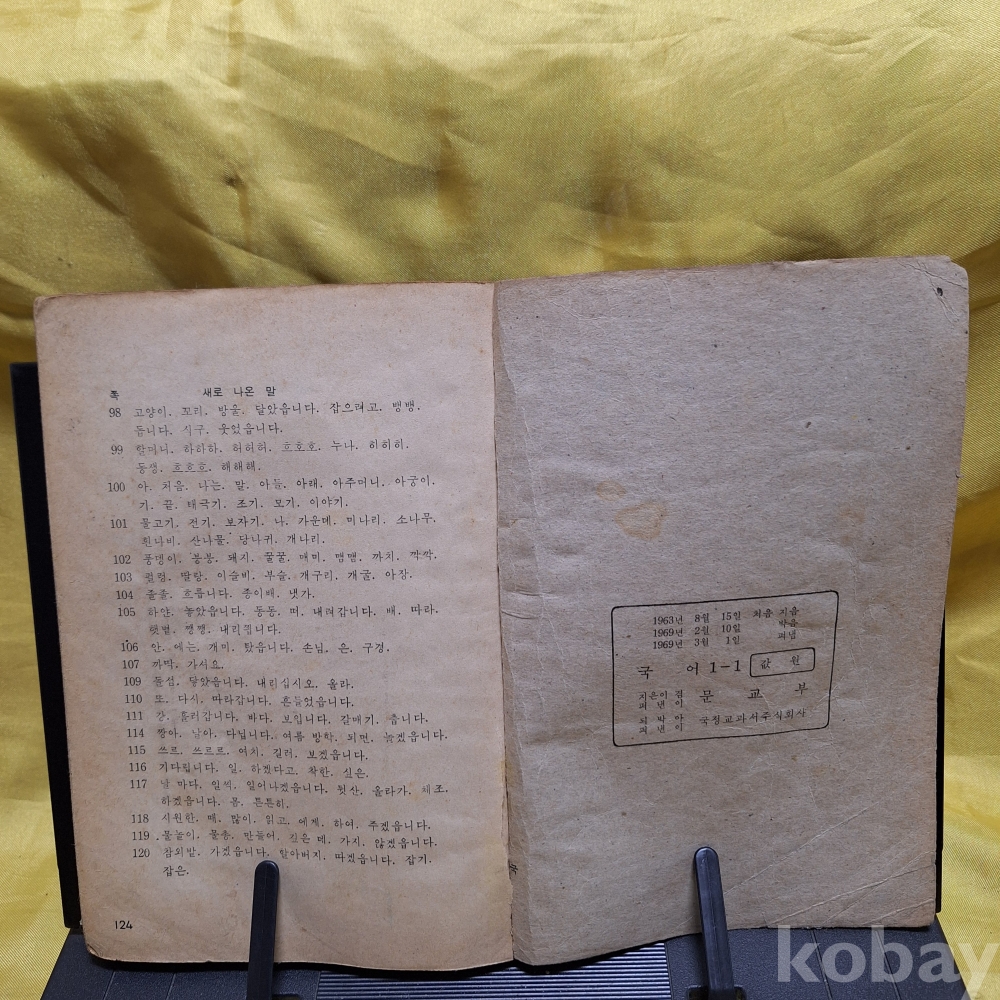 쪽 새로 나온 말
98 고양이. 꼬리. 방울. 달았읍니다. 잡으려고. 뱅뱅.
돕니다. 식구. 웃었읍니다.
99 할머니. 하하하. 허허허. 흐호호. 누나. 히히히.
동생. 흐흐흐. 해해해.
100 아. 처음. 나는. 말. 아들. 아래. 아주머니. 아궁이.
기. 끝. 태극기. 조기. 모기. 이야기.
101 물고기. 전기. 보자기. 나. 가운데. 미나리. 소나무.
흰나비. 산나물. 당나귀. 개나리.
102 풍뎅이. 붕붕. 돼지. 꿀꿀. 매미. 맴맴. 까치. 깍깍.
103 펄렁. 딸랑. 이슬비. 부슬. 개구리. 개굴. 아장.
104 졸졸. 흐릅니다. 종이배. 냇가.
105 하얀. 놓았읍니다. 동동. 떠. 내려갑니다. 배. 따라.
햇볕. 쨍쨍. 내리쬡니다.
106 안. 에는. 개미. 탔읍니다. 손님. 은. 구경.
107 까딱. 가서요.
109 돌섬. 닿았읍니다. 내리십시오. 올라.
110 또. 다시. 따라갑니다. 흔들었읍니다.
111 강. 흘러갑니다. 바다. 보입니다. 갈매기. 춥니다.
114 짱아. 날아. 다닙니다. 여름 방학. 되면. 놀겠읍니다.
115 쓰르. 쓰르르. 여치. 길러. 보겠읍니다.
116 기다립니다. 일. 하겠다고. 착한. 싶은.
117 날 마다. 일찍. 일어나겠읍니다. 뒷산. 올라가. 체조.
하겠읍니다. 몸. 튼튼히.
118 시원한. 때. 많이. 읽고. 에게. 하여. 주겠읍니다.
119 물놀이. 물총. 만들어. 깊은 데. 가지. 않겠읍니다.
120 참외밭. 가겠읍니다. 할아버지. 따겠읍니다. 잡기.
잡은.
124
1963년 8월 15일 처음 지음
1969년 2월 10일 박음
1969년 3월 1일 펴냄
국 어 1-1 값 원
지은이 겸
펴낸이 문 교 부
되 박 아
펴 낸 이 국정교과서주식회사
kobay